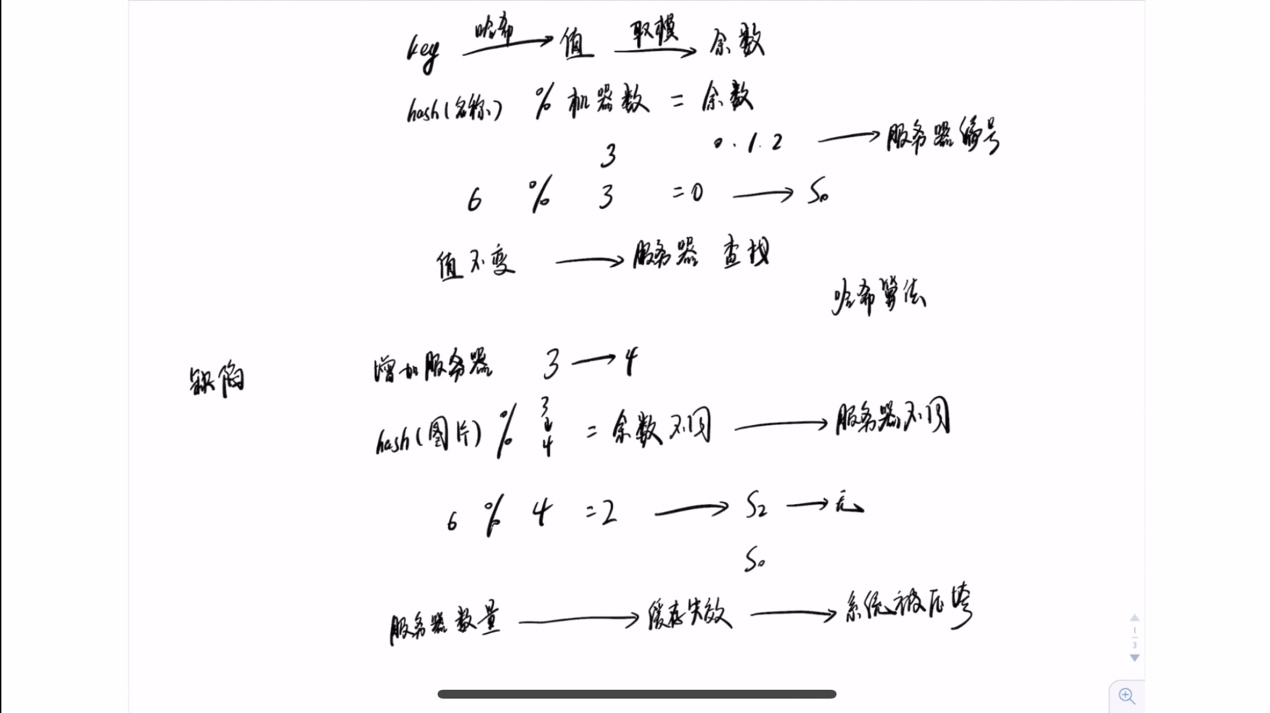 key 哈希 → 值 取模 → 余数
hash(名称) % 机器数 = 余数
3 0.1.2 → 服务器编号
6 % 3 = 0 → S0
值不变 → 服务器 查找
哈希算法
缺陷 增加服务器 3 → 4
hash(图片) % 3 ↓ 4 = 余数不同 → 服务器不同
6 % 4 = 2 → S2 → 无
S0
服务器数量 → 缓存失效 → 系统被压垮
1
3